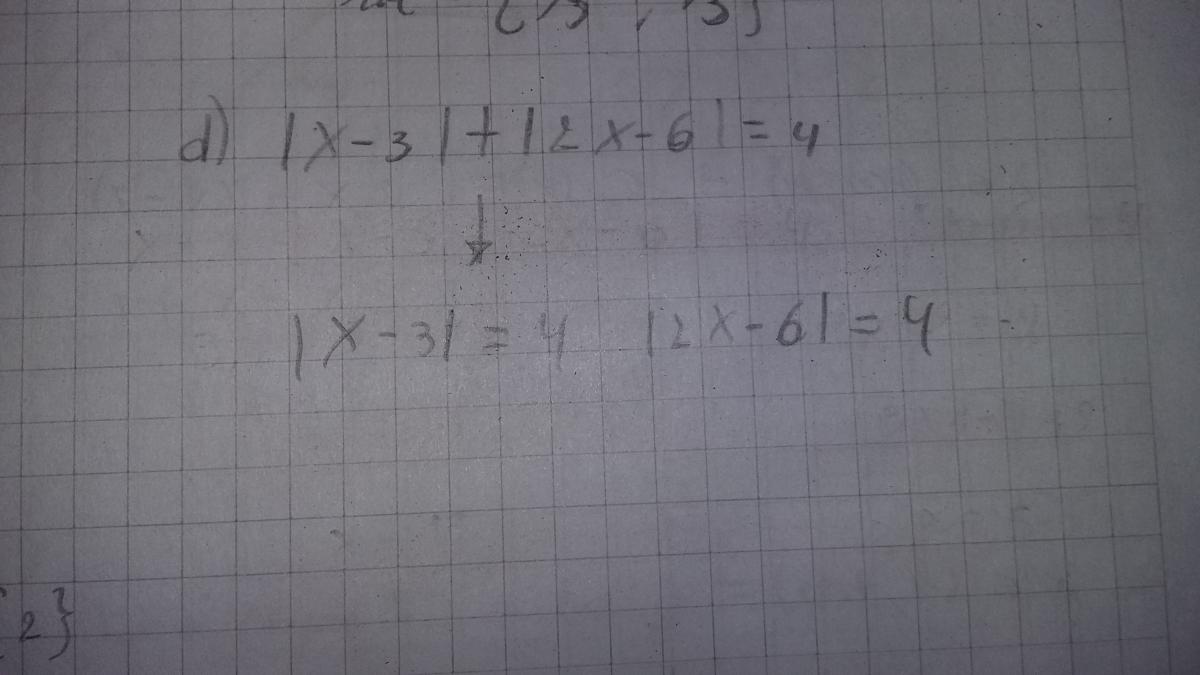 d) |x-3|+|2x-6|=4
↓
|x-3|=4 |2x-6|=4
2}